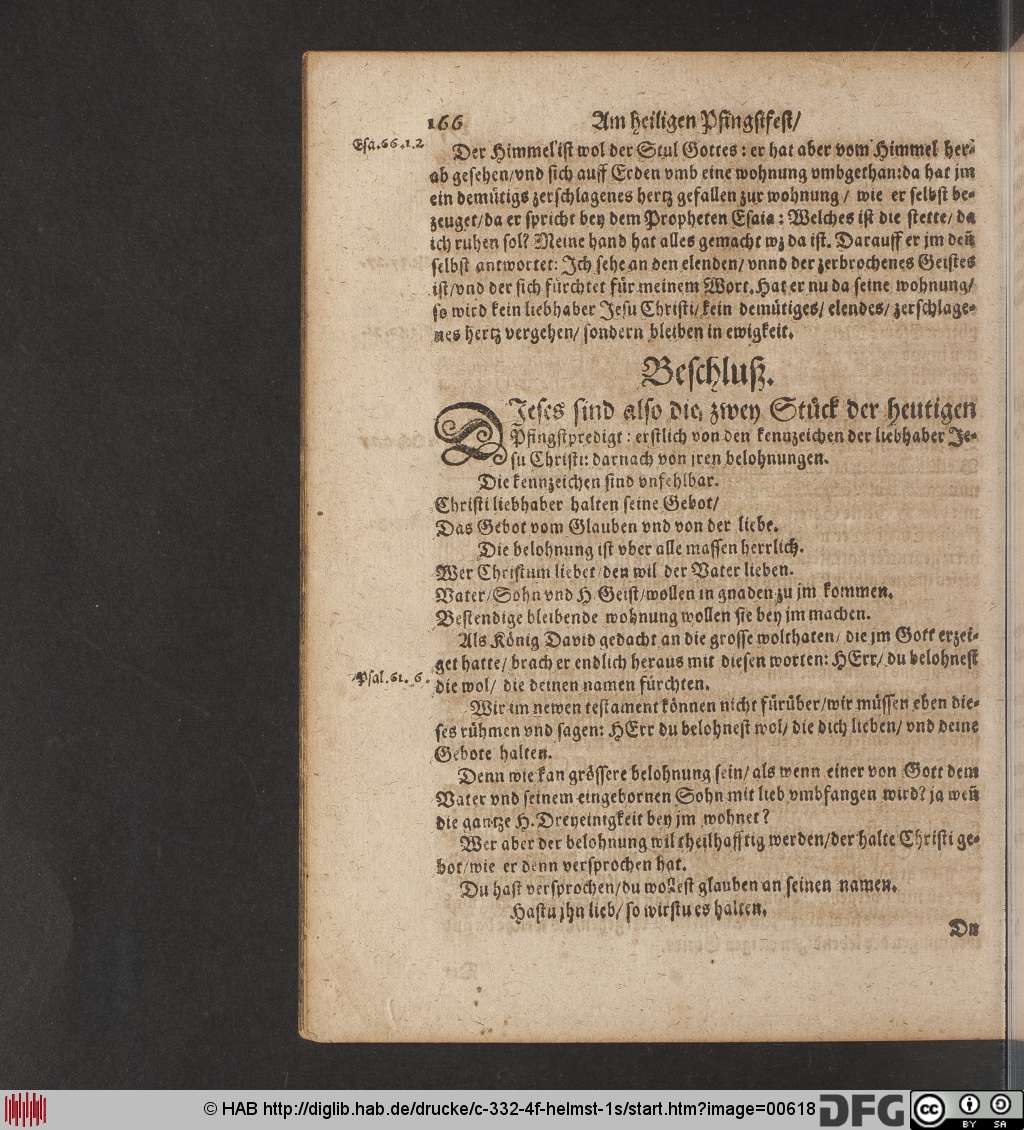 166 Am heiligen Pfingstfest/
Esa. 66. 1. 2
Der Himmel ist wol der Stul Gottes : er hat aber vom Himmel her-
ab gesehen/vnd sich auff Erden vmb eine wohnung vmbgethan: da hat jm
ein demütigs zerschlagenes hertz gefallen zur wohnung / wie er selbst be-
zeuget/da er spricht bey dem Propheten Esaia : Welches ist die stette/ da
ich ruhen sol? Meine hand hat alles gemacht wz da ist. Darauff er jm deñ
selbst antwortet: Ich sehe an den elenden/ vnnd der zerbrochenes Geistes
ist/vnd der sich fürchtet für meinem Wort. Hat er nu da seine wohnung/
so wird kein liebhaber Jesu Christi/ kein demütiges/ elendes/ zerschlage-
nes hertz vergehen/ sondern bleiben in ewigkeit.
Beschluß.
DIeses sind also die zwey Stück der heutigen
Pfingstpredigt : erstlich von den kennzeichen der liebhaber Je-
su Christi: darnach von jren belohnungen.
Die kennzeichen sind vnfehlbar.
Christi liebhaber halten seine Gebot/
Das Gebot vom Glauben vnd von der liebe.
Die belohnung ist vber alle massen herrlich.
Wer Christum liebet/den wil der Vater lieben.
Vater/Sohn vnd H. Geist/wollen in gnaden zu jm kommen.
Bestendige bleibende wohnung wollen sie bey jm machen.
Als König David gedacht an die grosse wolthaten/ die jm Gott erzei-
get hatte/ brach er endlich heraus mit diesen worten: HErr/ du belohnest
Psal. 61. 6.
die wol/ die deinen namen fürchten.
Wir im newen testament können nicht fürüber/wir müssen eben die-
ses rühmen vnd sagen: HErr du belohnest wol/ die dich lieben/ vnd deine
Gebote halten.
Denn wie kan grössere belohnung sein/ als wenn einer von Gott dem
Vater vnd seinem eingebornen Sohn mit lieb vmbfangen wird? ja weñ
die gantze H. Dreyeinigkeit bey jm wohnet?
Wer aber der belohnung wil theilhafftig werden/der halte Christi ge-
bot/wie er denn versprochen hat.
Du hast versprochen/du wollest glauben an seinen namen.
Hastu jhn lieb/ so wirstu es halten.
Du
© HAB http://diglib.hab.de/drucke/c-332-4f-helmst-1s/start.htm?image=00618 DFG cc BY SA